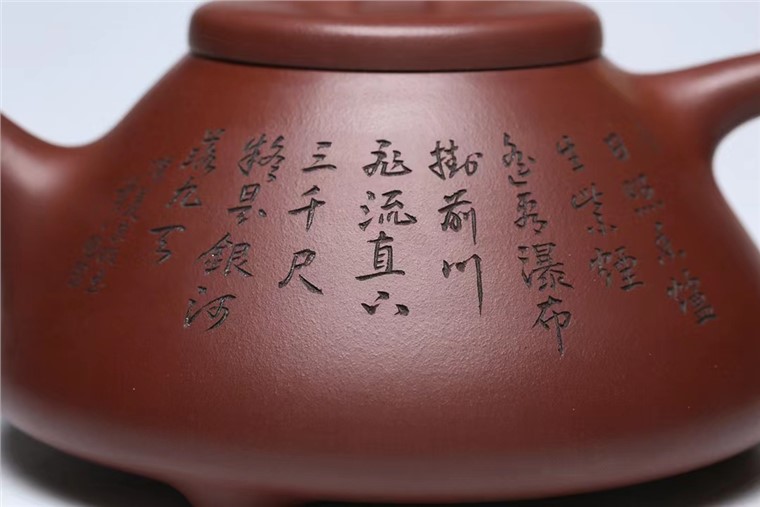 日照香爐
生紫煙
遙看瀑布
掛前川
飛流直下
三千尺
疑是銀河
落九天